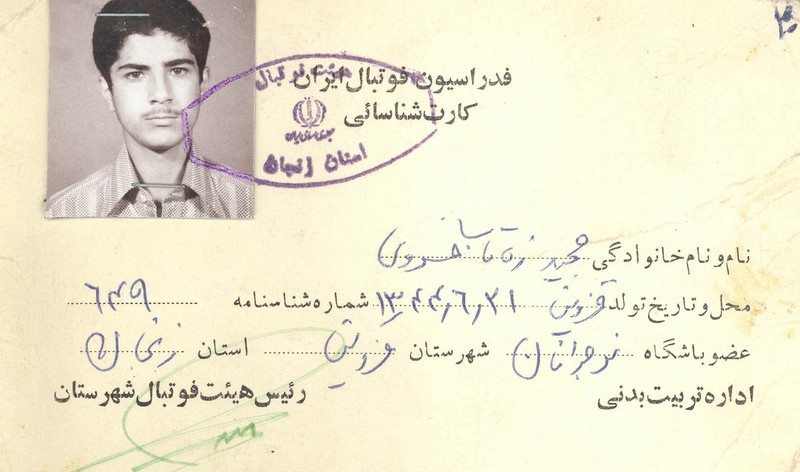 ۳۰
فدراسیون فوتبال ایران
کارت شناسائی
هیئت فوتبال
استان زنجان
نام و نام خانوادگی مجید
محل و تاریخ تولد قزوین ۱۳۴۴٫۶٫۳۱ شماره شناسنامه ۶۴۹
عضو باشگاه نوجوانان شهرستان قزوین استان زنجان
اداره تربیت بدنی
رئیس هیئت فوتبال شهرستان